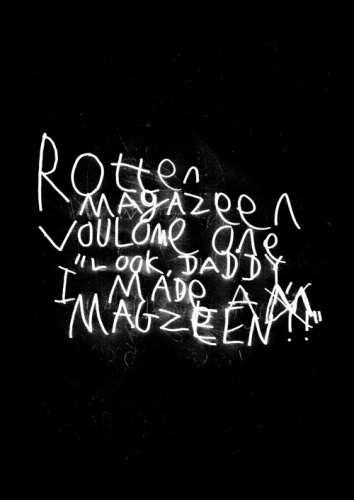 Rotten
MAgAzeen
VOULOMe One
"LOOK, DADDY
I MADe A
MAGZEEN!!"